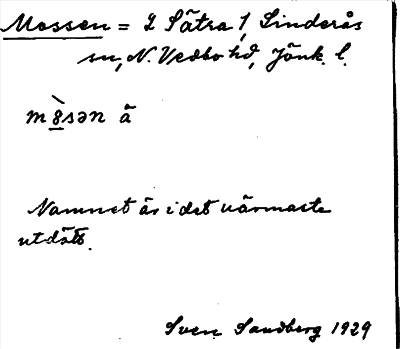 Mossen = 2 Sätra 1, Linderås
sn, N. Vedbo hd, Jönk. l.
m8̠̀sən ä
Namnet är i det närmaste
utdött.
Sven Sandberg 1929